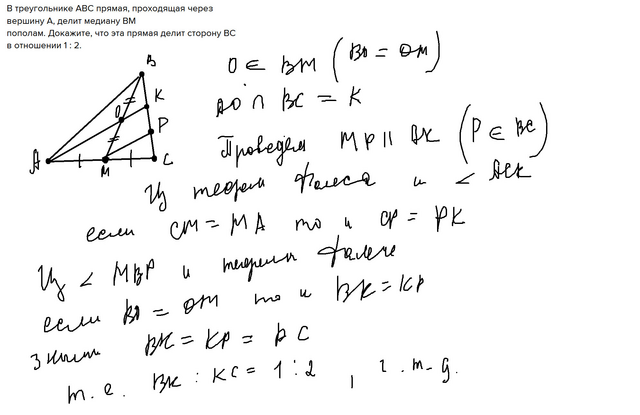 В треугольнике ABC прямая, проходящая через
вершину A, делит медиану BM
пополам. Докажите, что эта прямая делит сторону BC
в отношении 1 : 2.
B
K
O
P
A
M
C
O ∈ BM (BO = OM)
AO ∩ BC = K
Проведём MP || AK (P ∈ BC)
Из теорем Фалеса и < ACK
если CM = MA то и CP = PK
Из < MBP и теоремы Фалеса
если BO = OM то и BK = KP
Значит BK = KP = PC
т.е. BK : KC = 1 : 2, ч.т.д.